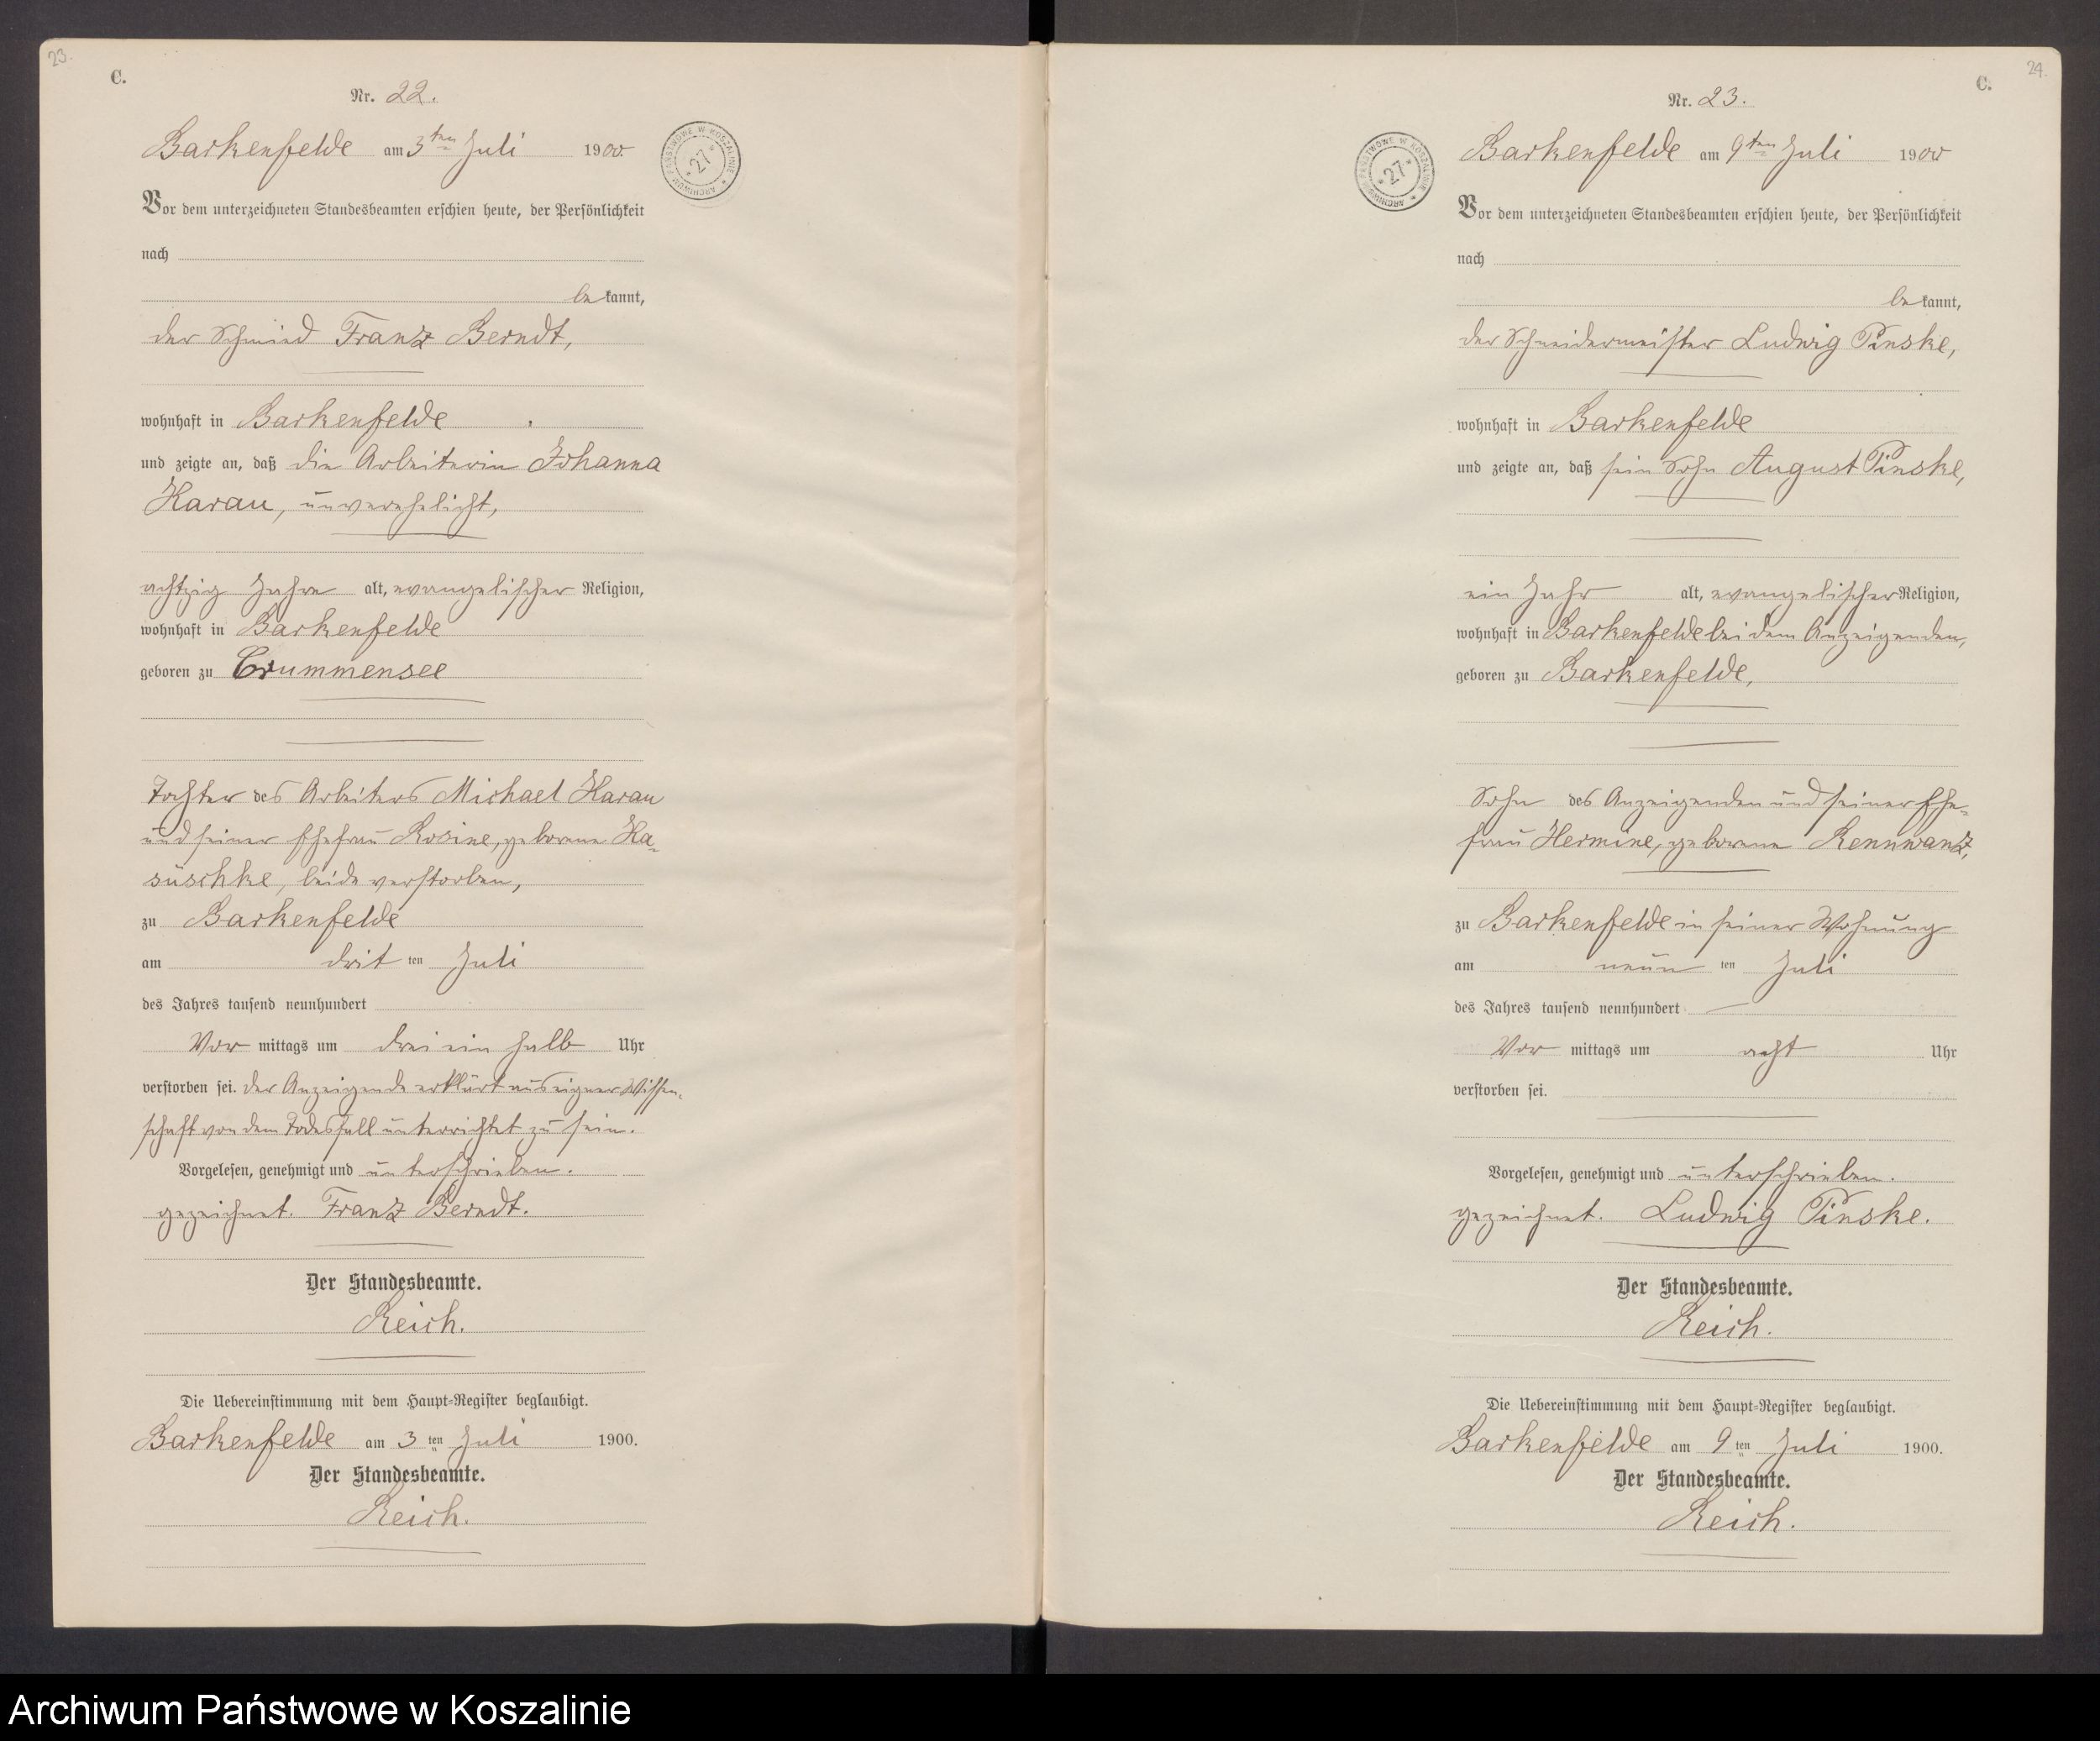 23.
C.
Nr. 22.
Barkenfelde am 3ten Juli 1900.
Vor dem unterzeichneten Standesbeamten erschien heute, der Persönlichkeit
nach
bekannt,
der Schmied Franz Berndt,
wohnhaft in Barkenfelde
und zeigte an, daß die Arbeiterin Johanna
Harau, unverehelicht,
achtzig Jahre alt, evangelischer Religion,
wohnhaft in Barkenfelde
geboren zu Crummensee
Tochter des Arbeiters Michael Harau
und seiner Ehefrau Rosine, geborene Ha-
suschke, beide verstorben,
zu Barkenfelde
am dritten Juli
des Jahres tausend neunhundert
Vormittags um drei ein halb Uhr
verstorben sei. Der Anzeigende erklärt aus eigner Wissen-
schaft von dem Todesfall unterrichtet zu sein.
Vorgelesen, genehmigt und unterschrieben.
gezeichnet. Franz Berndt.
Der Standesbeamte.
Reich.
Die Uebereinstimmung mit dem Haupt-Register beglaubigt.
Barkenfelde am 3ten Juli 1900.
Der Standesbeamte.
Reich.
ARCHIWUM PAŃSTWOWE W KOSZALINIE * 27 *
24.
C.
Nr. 23.
Barkenfelde am 9ten Juli 1900
Vor dem unterzeichneten Standesbeamten erschien heute, der Persönlichkeit
nach
bekannt,
der Schneidermeister Ludwig Pinske,
wohnhaft in Barkenfelde
und zeigte an, daß sein Sohn August Pinske,
ein Jahr alt, evangelischer Religion,
wohnhaft in Barkenfelde bei dem Anzeigenden,
geboren zu Barkenfelde,
Sohn des Anzeigenden und seiner Ehe-
frau Hermine, geborene Rennwanz,
zu Barkenfelde in seiner Wohnung
am neunten Juli
des Jahres tausend neunhundert
Vormittags um acht Uhr
verstorben sei.
Vorgelesen, genehmigt und unterschrieben.
gezeichnet. Ludwig Pinske.
Der Standesbeamte.
Reich.
Die Uebereinstimmung mit dem Haupt-Register beglaubigt.
Barkenfelde am 9ten Juli 1900.
Der Standesbeamte.
Reich.
ARCHIWUM PAŃSTWOWE W KOSZALINIE * 27 *
Archiwum Państwowe w Koszalinie